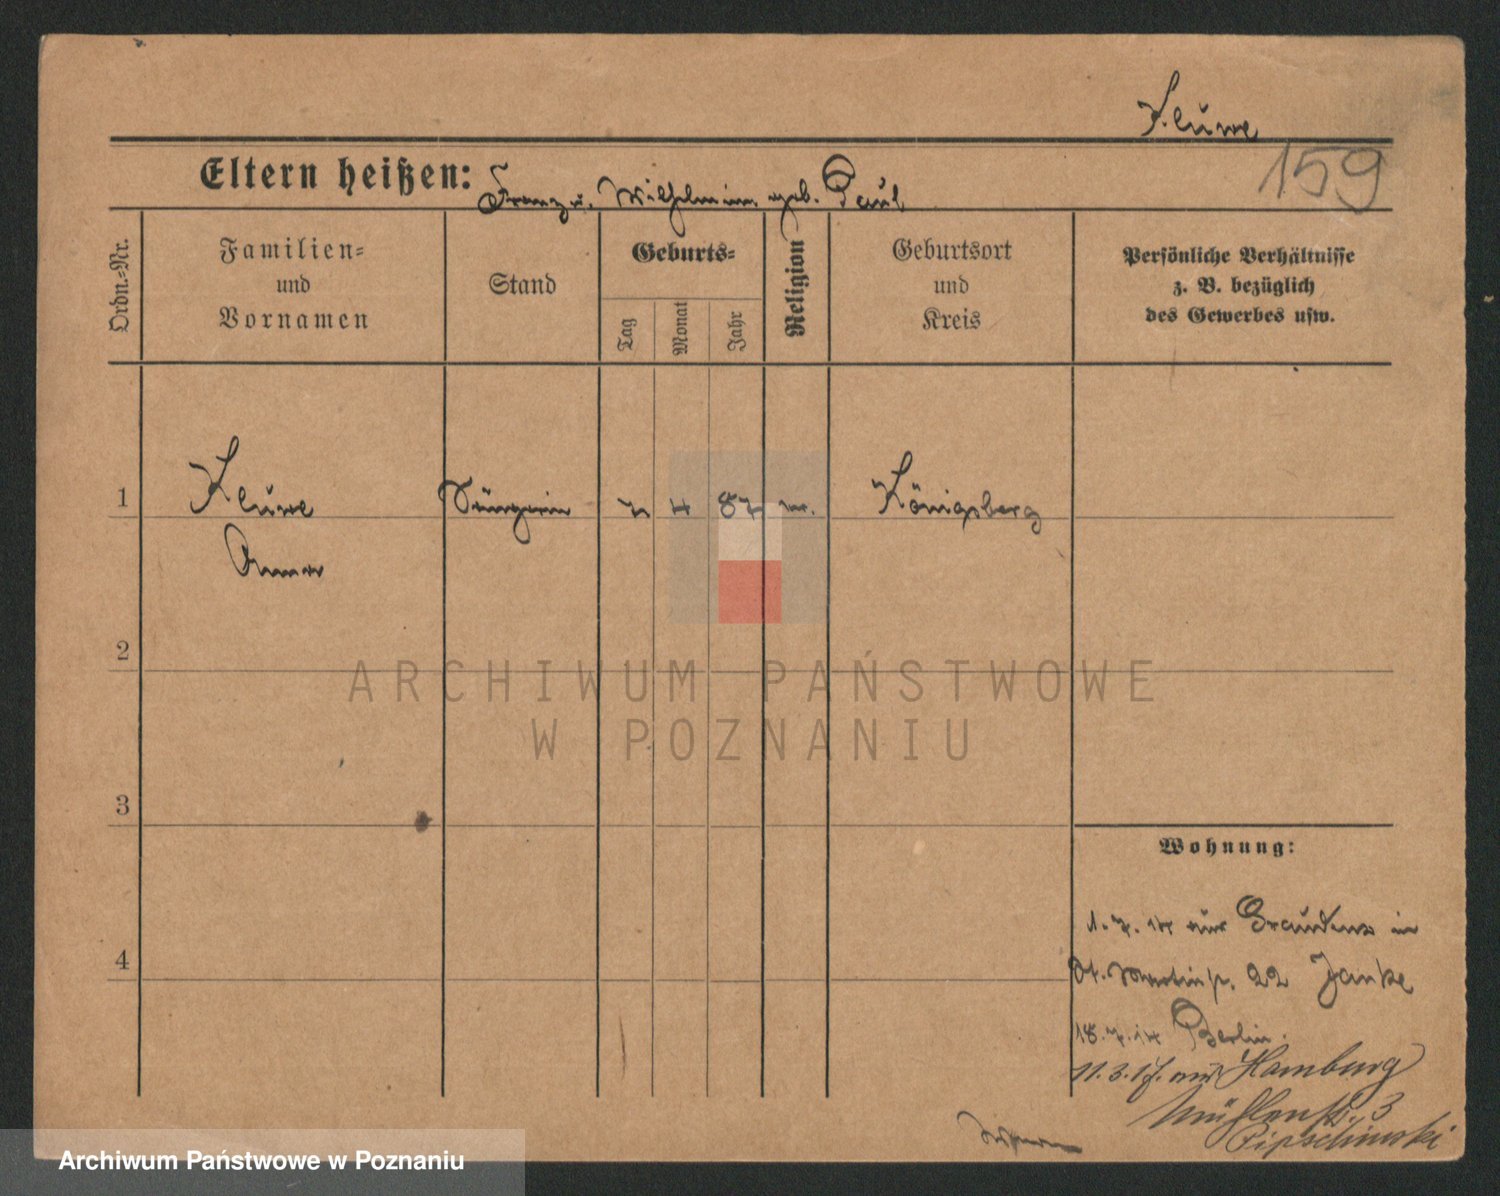 Kluwe
159
Eltern heißen: Franz u. Wilhelmine geb. Paul
Ordn.-Nr.
Familien-
und
Vornamen
Stand
Geburts-
Tag
Monat
Jahr
Religion
Geburtsort
und
Kreis
Persönliche Verhältnisse
z. B. bezüglich
des Gewerbes usw.
1 Kluwe Sängerin 7 4 87 Königsberg
Anna
2
3
4
Wohnung:
1. 7. 14 aus Graudenz in
St. Martinstr. 22 Janke
18. 7. 14 Berlin.
11. 3. 17. aus Hamburg
Mühlenstr. 3
Pipschinski
ARCHIWUM PAŃSTWOWE
W POZNANIU
Archiwum Państwowe w Poznaniu